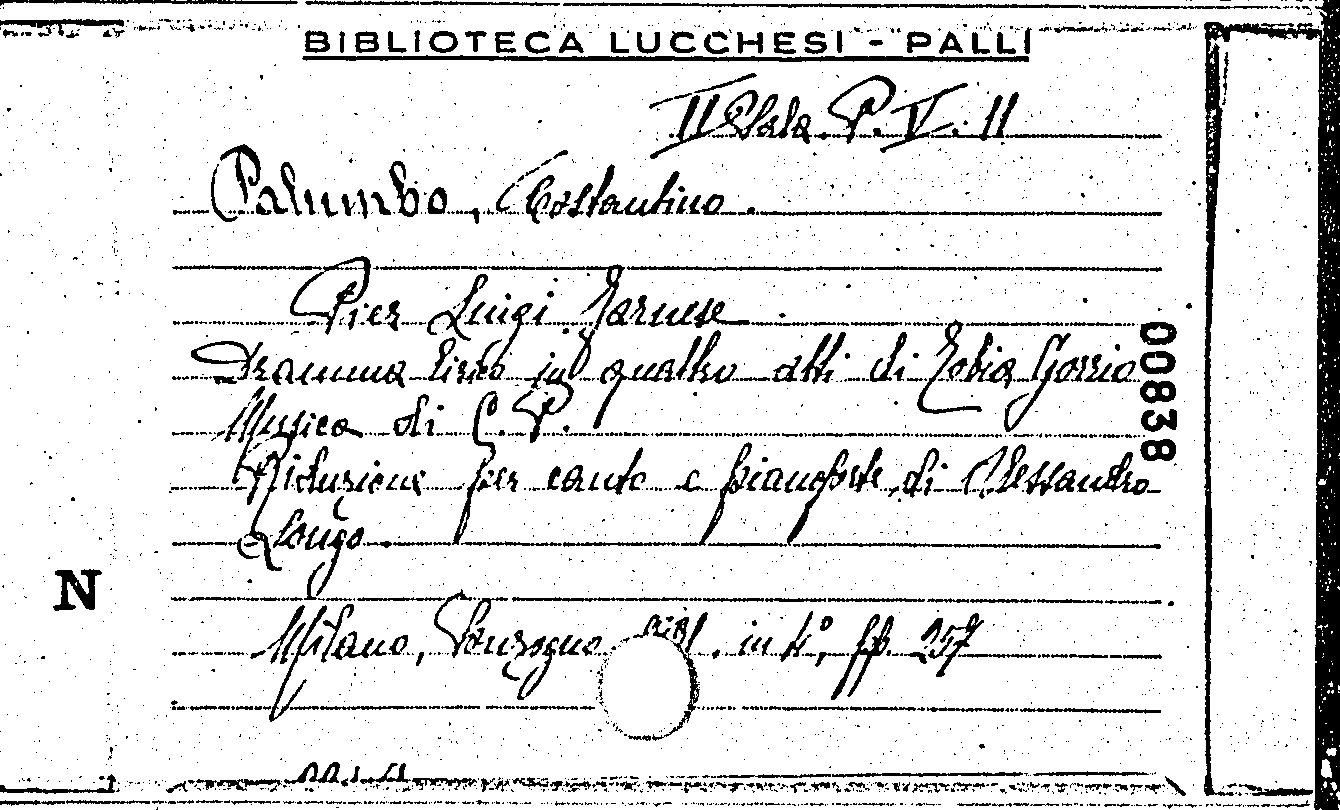 BIBLIOTECA LUCCHESI - PALLI
II Sala. P. V. 11
Palumbo, Costantino.
Pier Luigi Farnese.
Dramma lirico in quattro atti di Tobia Gorrio
Musica di C. P.
Riduzione per canto e pianoforte di Alessandro
Longo.
Milano, Sonzogno in 4°, pp. 257
00838
N